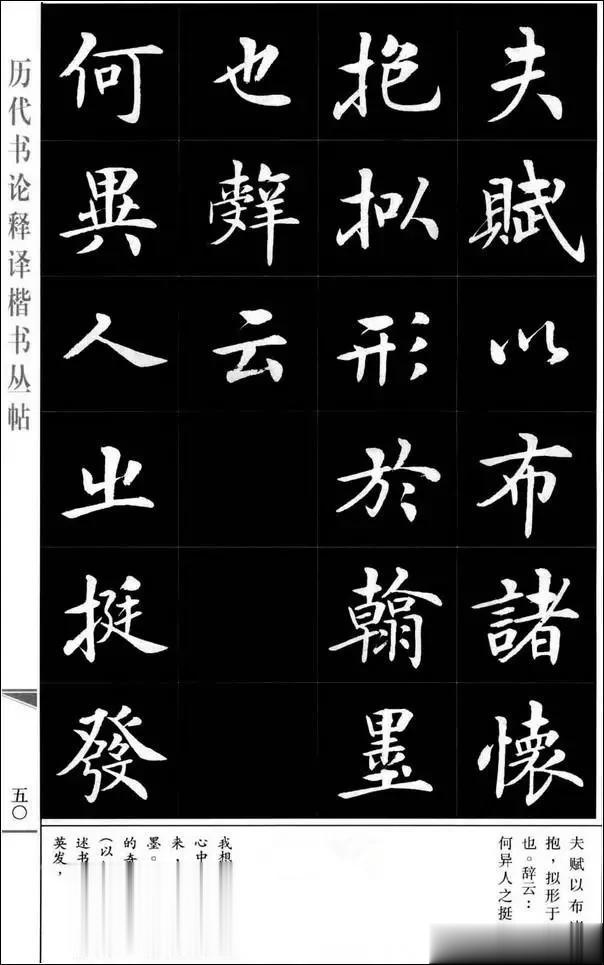 夫賦以布諸懷
抱拟形於翰墨
也辤云
何異人之挺發
历代书论释译楷书丛帖
五〇
夫赋以布
抱，拟形于
也。辞云：
何异人之挺
我想
心中
来，
墨。
的
（以
述书
英发，